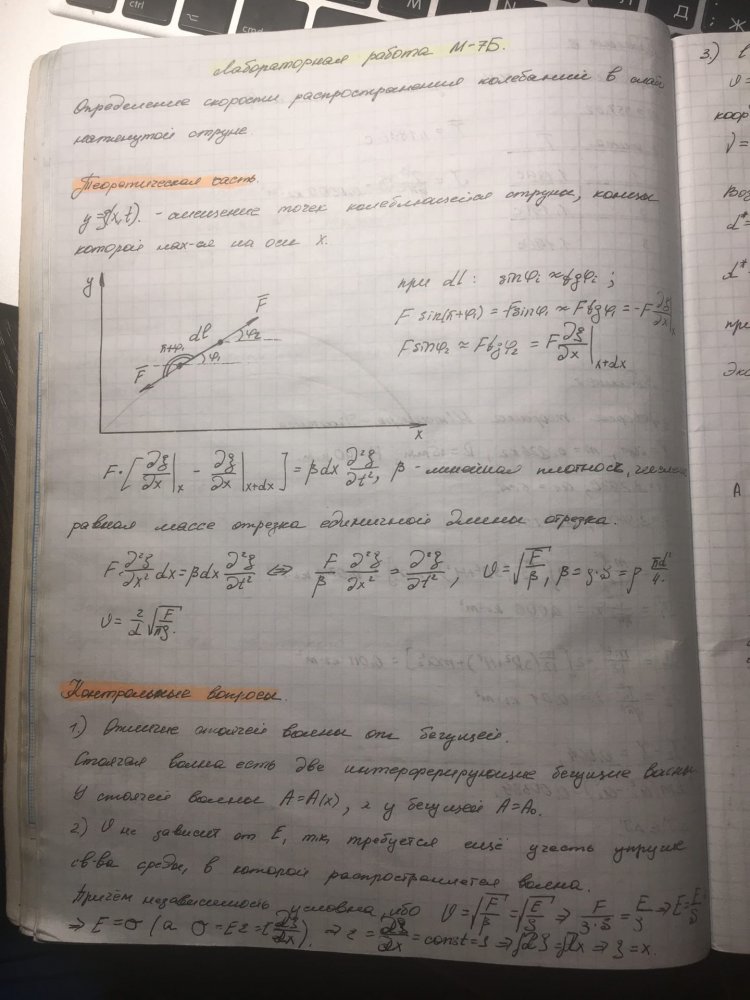 Лабораторная работа М-7Б.
Определение скорости распространения колебаний в
натянутой струне.
Теоретическая часть.
y=ξ(x,t). - смещение точек колеблющейся струны, концы
которой нах-ся на оси x.
y
F̄
dl
φ₂
π+φ₁
φ₁
F̄
x
при dl: sinφᵢ ≈ tgφᵢ ;
F sin(π+φ₁) = -Fsinφ₁ ≈ Ftgφ₁ = -F ∂ξ/∂x|ₓ
Fsinφ₂ ≈ Ftgφ₂ = F ∂ξ/∂x|ₓ₊dx
F·[∂ξ/∂x|ₓ - ∂ξ/∂x|ₓ₊dx] = βdx ∂²ξ/∂t², β - линейная плотность, численно
равная массе отрезка единичной длины отрезка.
F·∂²ξ/∂x² dx = βdx ∂²ξ/∂t² ⇔ F/β ∂²ξ/∂x² = ∂²ξ/∂t², υ=√(F/β), β=ρ·S=ρ πd²/4.
υ = 2/d √(F/πρ).
Контрольные вопросы.
1.) Отличие стоячей волны от бегущей.
Стоячая волна есть две интерферирующие бегущие волны
У стоячей волны A=A(x), а у бегущей A=A₀.
2) υ не зависит от E, т.к. требуется ещё учесть упругие
св-ва среды, в которой распространяется волна.
Причём независимость условна, ибо υ=√(F/β)=√(E/ρ) ⇒ F/ρ·S = E/ρ ⇒ E=F/S
⇒ E=σ (а σ=Eε=E dξ/dx). ⇒ ε = dξ/dx = const=1 ⇒ ∫dξ=∫dx ⇒ ξ=x.
3.)
υ=
коор
d*=
d*
пре
Экс
A